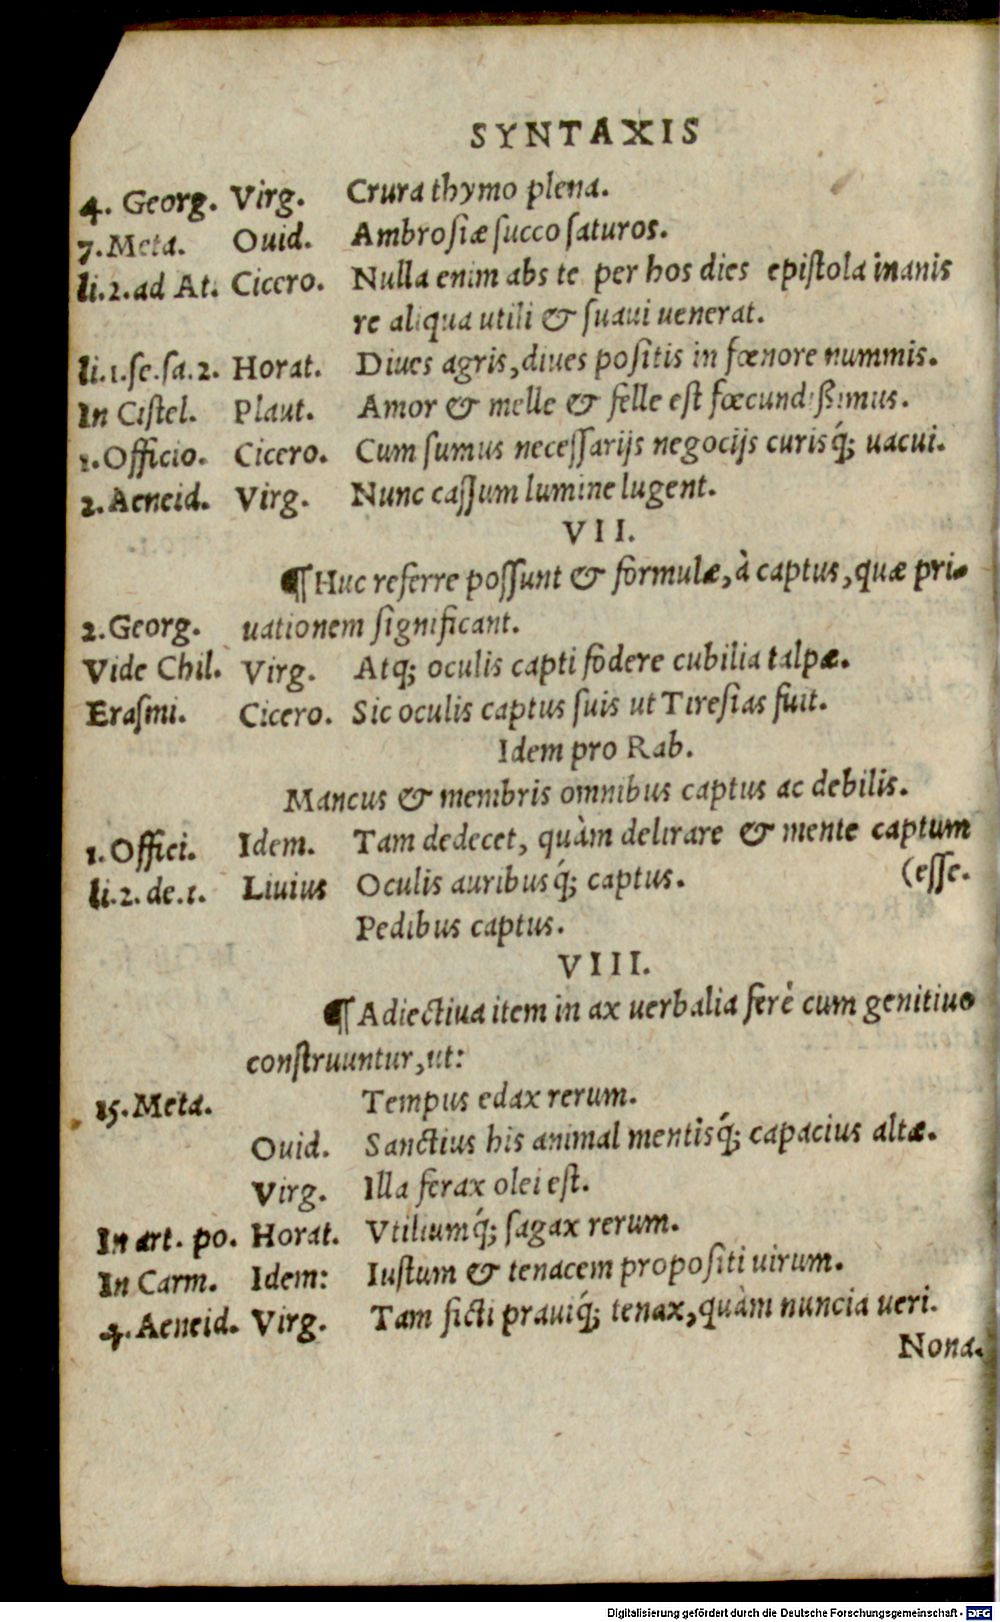 SYNTAXIS
4. Georg. Virg. Crura thymo plena.
7. Meta. Ouid. Ambrosiæ succo saturos.
li.2.ad At. Cicero. Nulla enim abs te per hos dies epistola inanis
re aliqua utili & suaui uenerat.
li.1.se.sa.2. Horat. Diues agris, diues positis in fœnore nummis.
In Cistel. Plaut. Amor & melle & felle est fœcundißimus.
1. Officio. Cicero. Cum sumus necessarijs negocijs curisq́; uacui.
2. Aeneid. Virg. Nunc cassum lumine lugent.
VII.
¶ Huc referre possunt & formulæ, à captus, quæ pri-
2. Georg. uationem significant.
Vide Chil. Virg. Atq; oculis capti fodere cubilia talpæ.
Erasmi. Cicero. Sic oculis captus suis ut Tiresias fuit.
Idem pro Rab.
Mancus & membris omnibus captus ac debilis.
1. Offici. Idem. Tam dedecet, quàm delirare & mente captum
(esse.
li.2. de.1. Liuius Oculis auribusq́; captus.
Pedibus captus.
VIII.
¶ Adiectiua item in ax uerbalia ferè cum genitiuo
construuntur, ut:
15. Meta. Tempus edax rerum.
Ouid. Sanctius his animal mentisq́; capacius altæ.
Virg. Illa ferax olei est.
In art. po. Horat. Vtiliumq́; sagax rerum.
In Carm. Idem: Iustum & tenacem propositi uirum.
4. Aeneid. Virg. Tam ficti prauiq́; tenax, quàm nuncia ueri.
Nona.
Digitalisierung gefördert durch die Deutsche Forschungsgemeinschaft - DFG